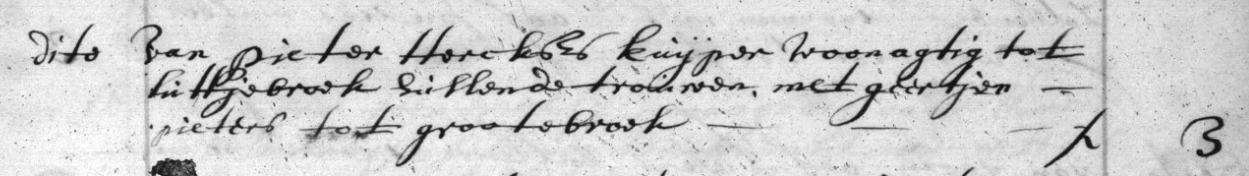 dito van pieter Hercksz kuijper woonagtig tot
lutkjebroek sullende trouwen, met geertjen —
pieters tot grootebroek — — — ƒ 3